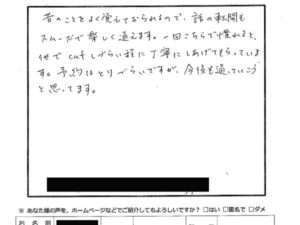 昔のことをよく覚えておられるので、話の転開も
スムーズで楽しく通えます。一回こちらで慣れると、
他でcutしづらい程に丁寧にしあげてもらっていま
す。予約はとりづらいですが、今後も通っていこう
と思ってます。
※ あなた様の声を、ホームページなどでご紹介してもよろしいですか? □はい □匿名で □ダメ
お 名 前